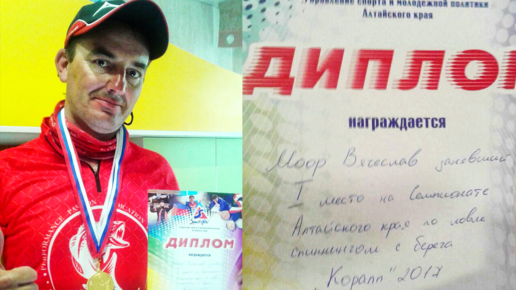 ДИПЛОМ
НАГРАЖДАЕТСЯ
Управление спорта и молодежной политики
Алтайского края
ДИПЛОМ
награждается
Моор Вячеслав занявший
I место на Чемпионате
Алтайского края по ловле
спиннингом с берега
„Коралл" 2017